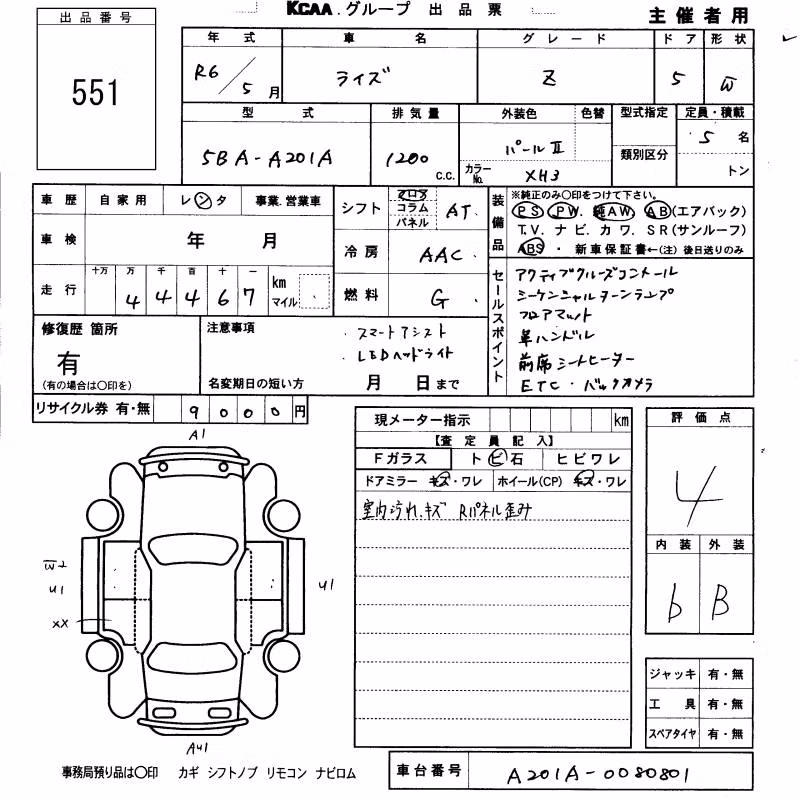 KCAA.グループ 出品票
主催者用
出品番号
551
年式 車名 グレード ドア 形状
R6/5月 ライズ Z 5 W
型式 排気量 外装色 色替 型式指定 定員・積載
5BA-A201A 1200 C.C. パールII カラーNo. XH3 類別区分 5名 トン
車歴 自家用 レンタ 事業.営業車
シフト フロア コラム パネル AT
車検 年 月
冷房 AAC
走行 十万 万 千 百 十 一 km マイル
4 4 4 6 7
燃料 G
装備品 ※純正のみ○印をつけて下さい。
PS PW. 純AW AB(エアバック)
T.V. ナビ. カワ. SR(サンルーフ)
ABS ・ 新車保証書←(注) 後日送りのみ
セールスポイント
アクティブクルーズコントール
シーケンシャルターンランプ
フロアマット
革ハンドル
前席シートヒーター
ETC・バックカメラ
修復歴 箇所
有
(有の場合は○印を)
注意事項
・スマートアシスト
・LEDヘッドライト
名変期日の短い方 月 日まで
リサイクル券 有・無 9000円
現メーター指示 km
【査定員記入】
Fガラス トビ石 ヒビワレ
ドアミラー キズ・ワレ ホイール(CP) キズ・ワレ
室内汚れ.キズ Rパネル歪み
評価点
4
内装 外装
b B
A1
W2
U1
XX
U1
AU1
ジャッキ 有・無
工具 有・無
スペアタイヤ 有・無
事務局預り品は○印 カギ シフトノブ リモコン ナビロム
車台番号 A201A-0080801